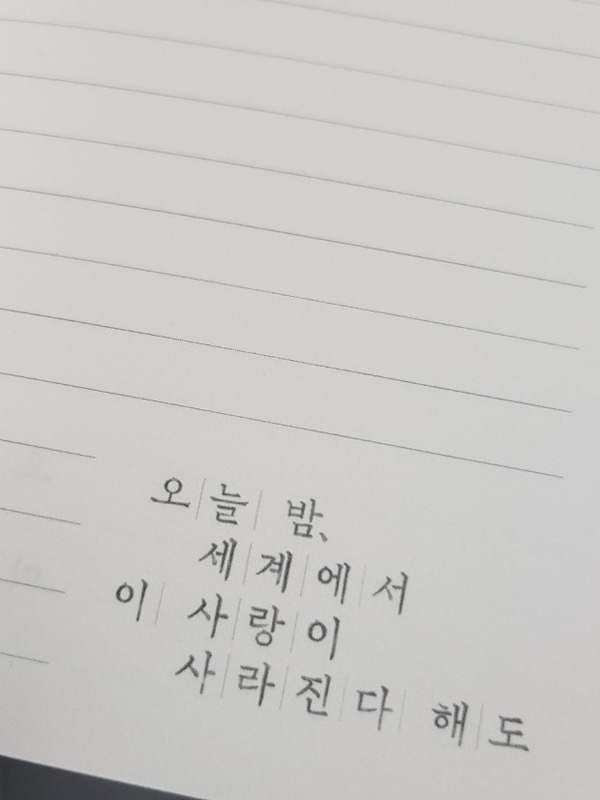 오늘 밤、
세계에서
이 사랑이
사라진다 해도